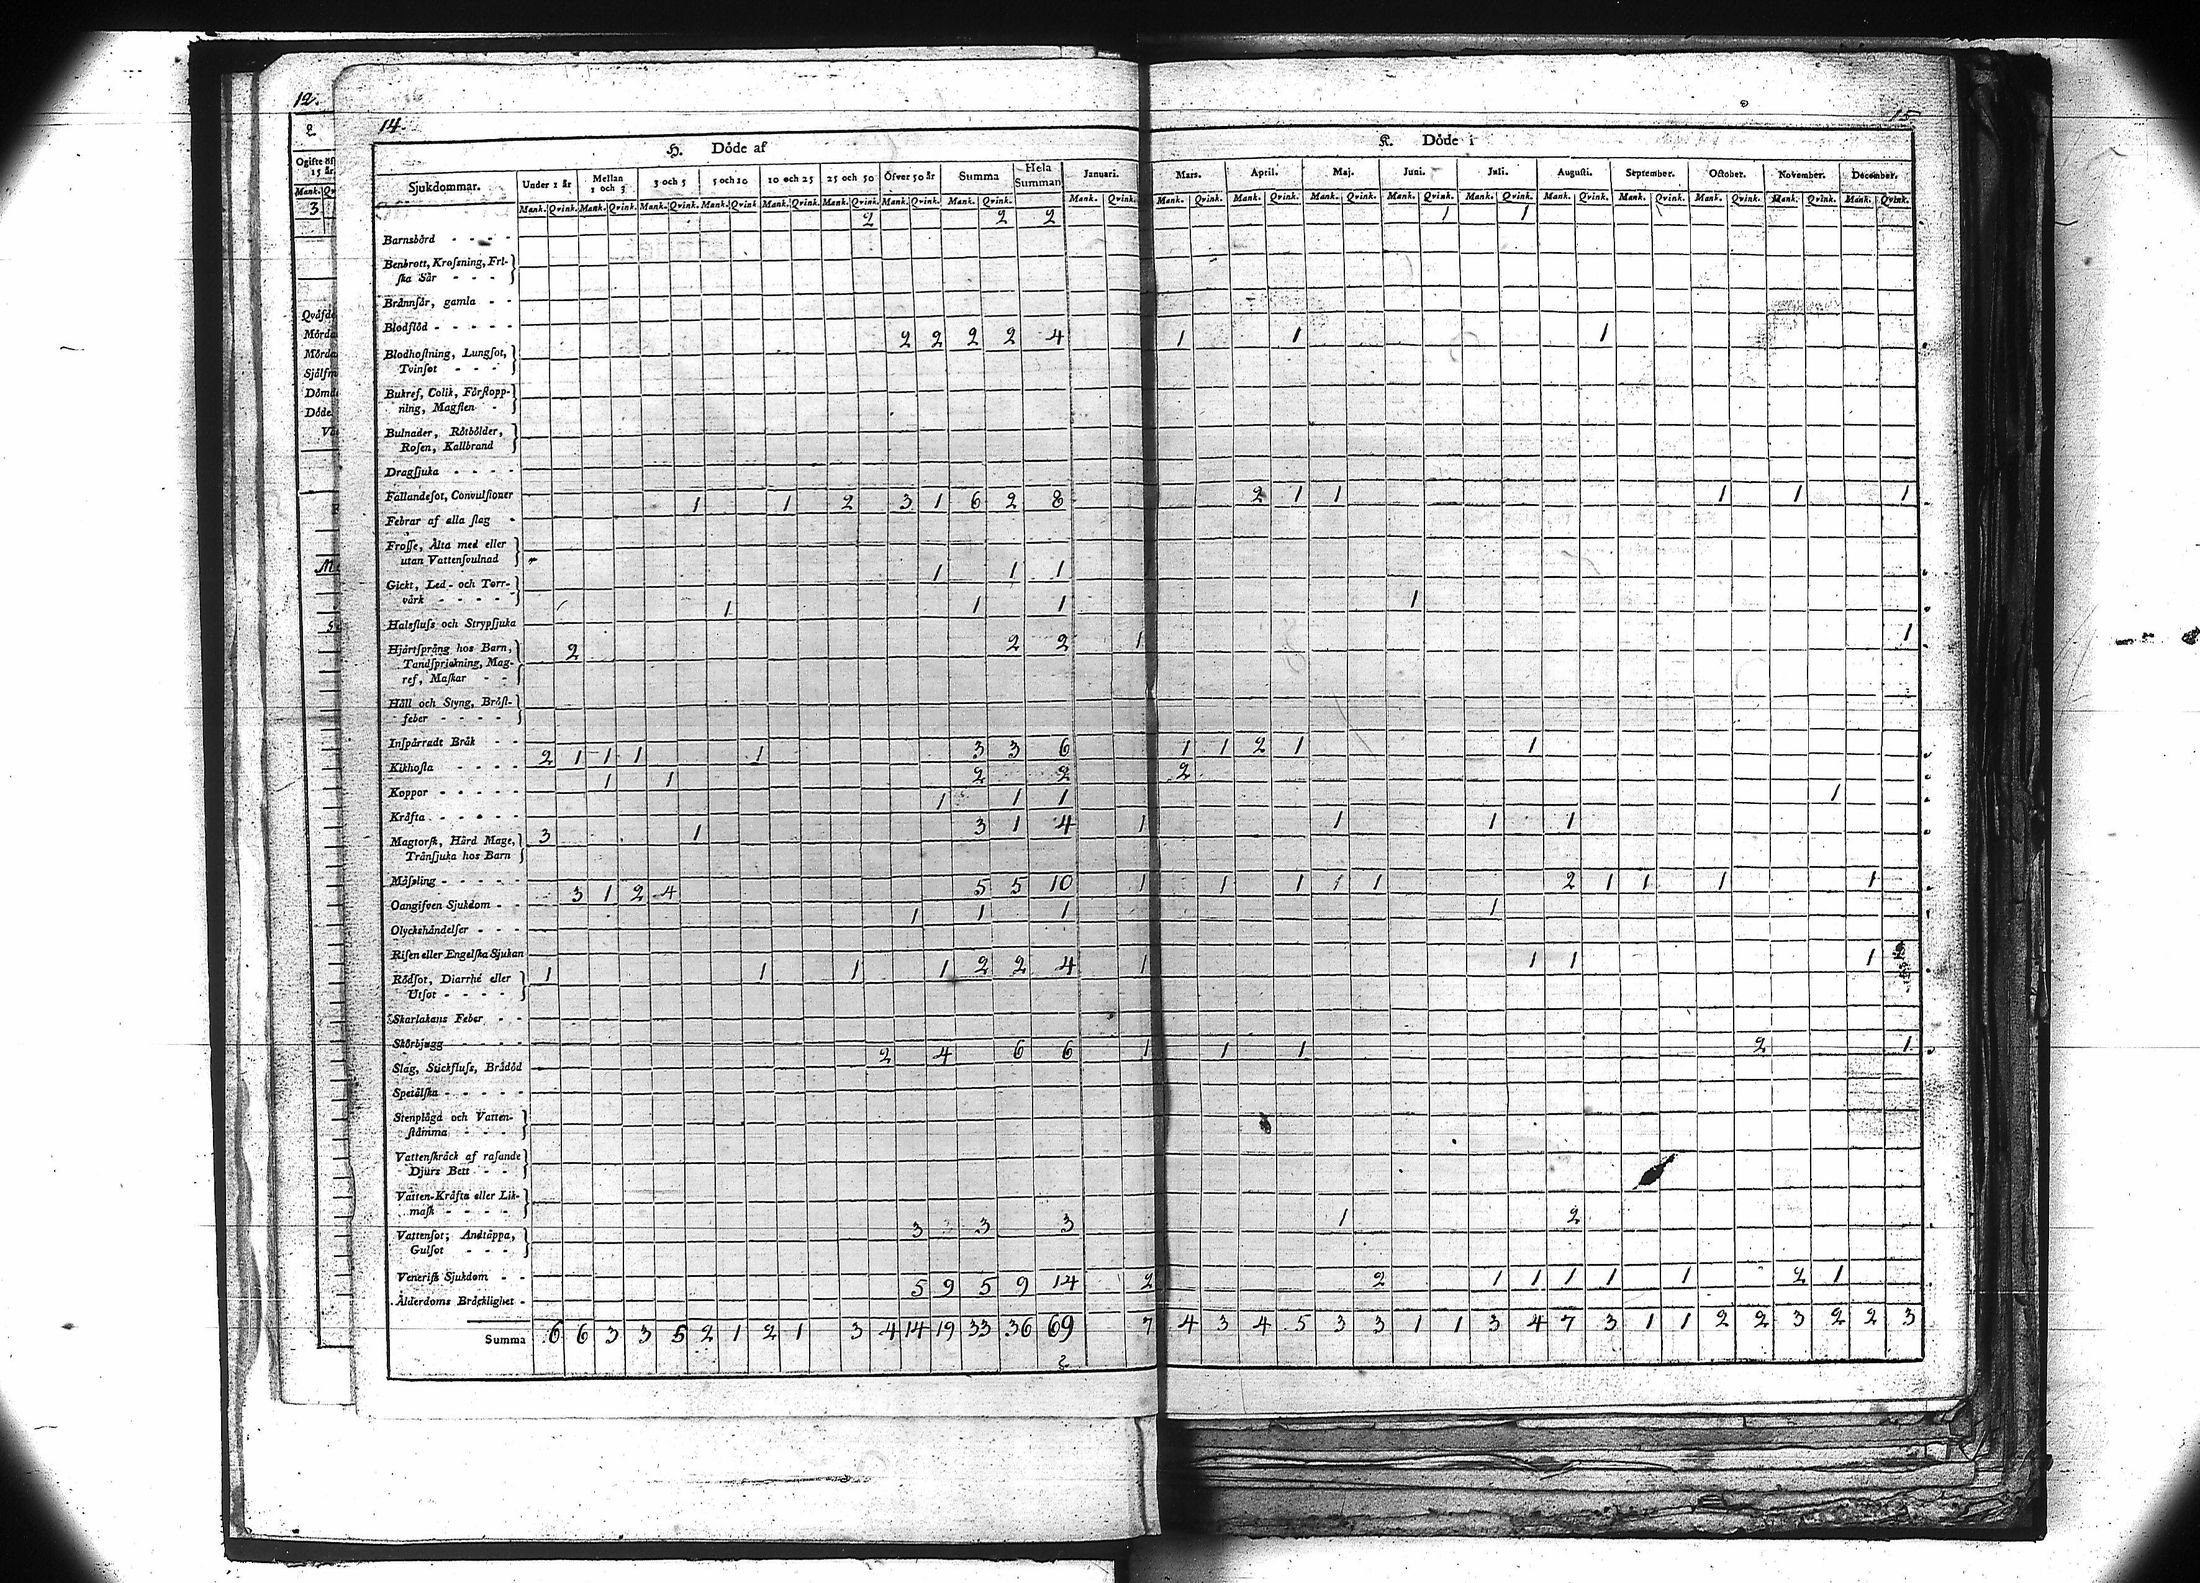 12.
2
Ogifte öf
15 år.
Mank. Qv
3
Qväfde
Mörda
Mörda
Sjelfm
Dömde
Döde
14.
H. Döde af
Sjukdommar. Under 1 år Mellan 1 och 3 3 och 5 5 och 10 10 och 25 25 och 50 Öfver 50 år Summa Hela Summan Januari.
Mank. Qvink. Mank. Qvink. Mank. Qvink. Mank. Qvink. Mank. Qvink. Mank. Qvink. Mank. Qvink. Mank. Qvink. Mank. Qvink.
2 2 2
Barnsbörd - - - -
Benbrott, Krossning, Fri-
ska Sår - - -
Brännsår, gamla - -
Blodflöd - - - - -
2 2 2 2 4
Blodhostning, Lungsot,
Tvinsot - - -
Bukref, Colik, Förstopp-
ning, Magsten -
Bulnader, Rötbölder,
Rosen, Kallbrand
Dragsjuka - - - -
Fallandesot, Convulsioner
1 1 2 3 1 6 2 8
Febrar af alla slag -
Frosse, Älta med eller
utan Vattensvulnad
1 1 1
Gickt, Led- och Torr-
värk - - - - -
1 1 1
Halsfluss och Strypsjuka
2 2 2 1
Hjärtsprång hos Barn,
Tandsprickning, Mag-
ref, Maskar - -
Håll och Styng, Bröst-
feber - - - -
Inspärradt Bråk - -
2 1 1 1 1 3 3 6
Kikhosta - - - -
1 1 2 2
Koppor - - - - -
1 1 1
Kräfta - - - - - -
3 1 3 1 4 1
Magtorsk, Hård Mage,
Tränsjuka hos Barn
Mässling - - - - -
3 1 2 4 5 5 10 1
Oangifven Sjukdom - -
1 1 1
Olyckshändelser - - -
Risen eller Engelska Sjukan
1 1 1 1 2 2 4 1
Rödsot, Diarrhé eller
Utsot - - - -
Skarlakans Feber - -
Skörbjugg - - - -
2 4 6 6 1
Slag, Stickfluss, Brådöd
Spetälska - - - - -
Stenplåga och Vatten-
stämma - - -
Vattenskräck af rasande
Djurs Bett - -
Vatten-Kräfta eller Lik-
mask - - - -
3 3 3
Vattensot; Andtäppa,
Gulsot - - -
Venerisk Sjukdom - -
5 9 5 9 14 2
Ålderdoms Bräcklighet -
Summa 6 6 3 3 5 2 1 2 1 3 4 14 19 33 36 69 7
15
K. Döde i
Mars. April. Maj. Juni. Juli. Augusti. September. October. November. December.
Mank. Qvink. Mank. Qvink. Mank. Qvink. Mank. Qvink. Mank. Qvink. Mank. Qvink. Mank. Qvink. Mank. Qvink. Mank. Qvink. Mank. Qvink.
1 1
1 1 1
2 1 1 1 1 1
1
1
1 1 2 1 1
2
1
1 1 1
1 1 1 1 2 1 1 1 1
1
1 1 1
1 1 2 1
1 2
2 1 1 1 1 1 2 1
4 3 4 5 3 3 1 1 3 4 7 3 1 1 2 2 3 2 2 3